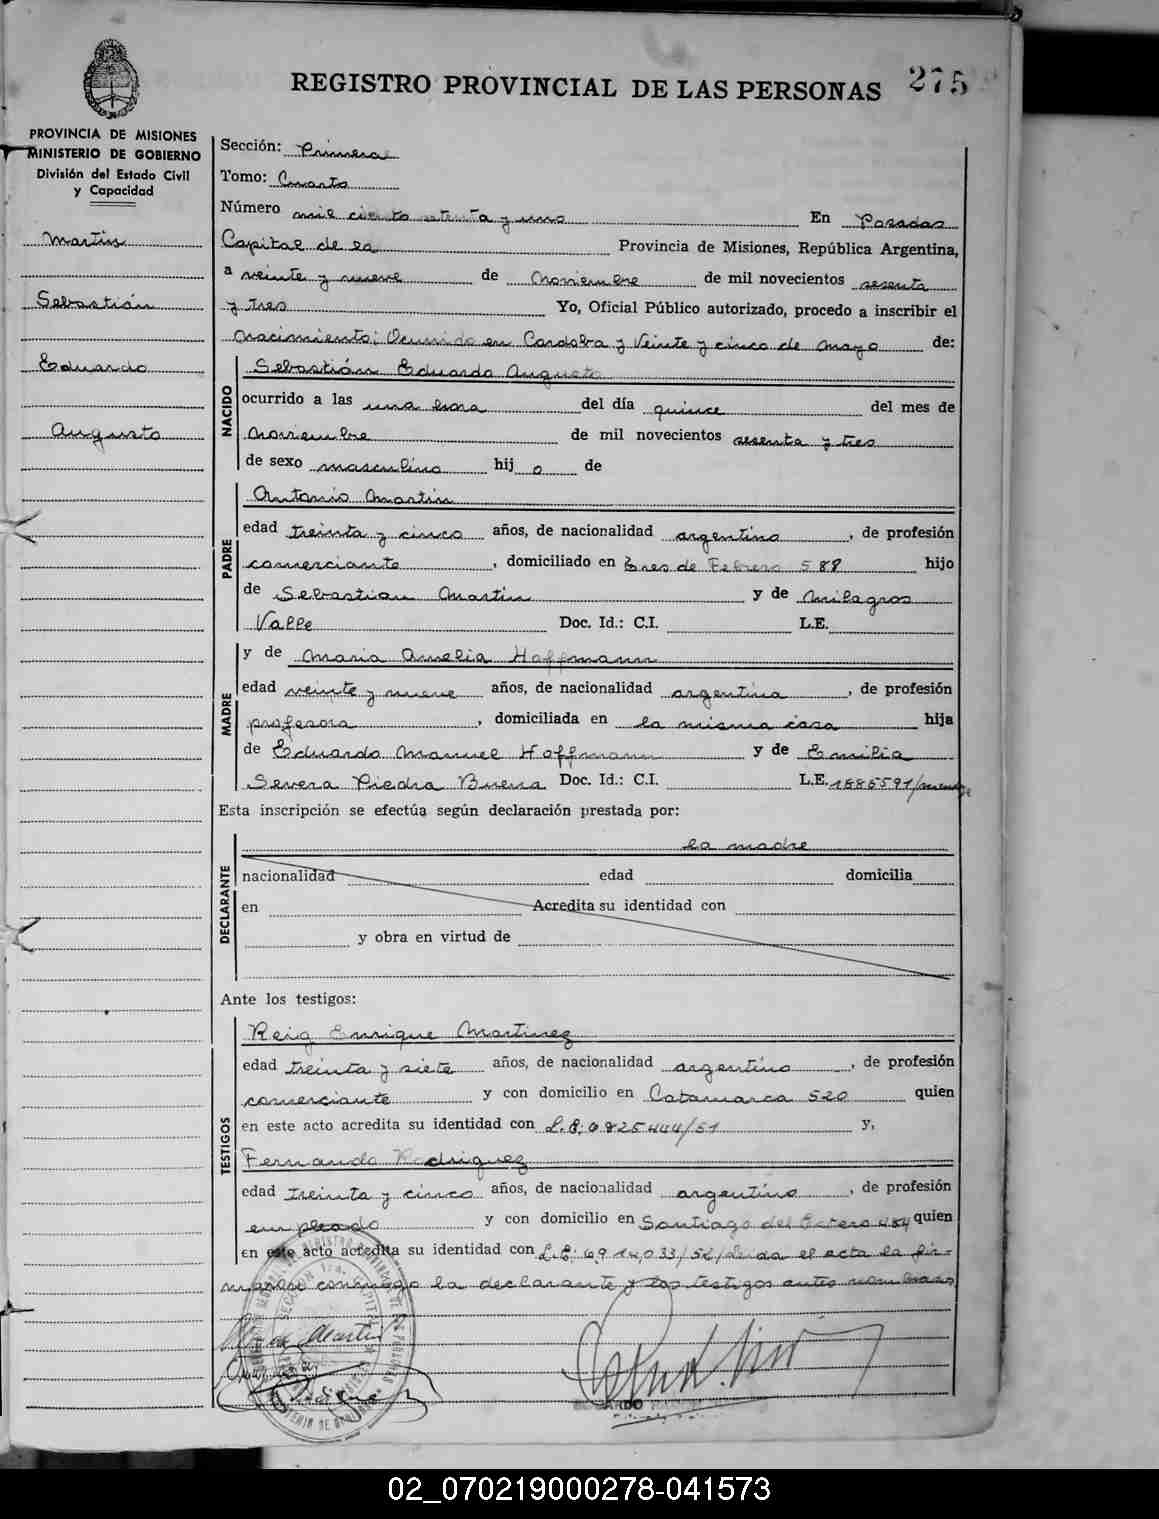 REGISTRO PROVINCIAL DE LAS PERSONAS 275
PROVINCIA DE MISIONES
MINISTERIO DE GOBIERNO
División del Estado Civil
y Capacidad
Martin
Sebastián
Eduardo
Augusto
Sección: Primera
Tomo: Cuarto
Número mil ciento setenta y uno En Posadas
Capital de la Provincia de Misiones, República Argentina,
a veinte y nueve de Noviembre de mil novecientos sesenta
y tres Yo, Oficial Público autorizado, procedo a inscribir el
Nacimiento; Ocurrido en Cordoba y Veinte y cinco de Mayo de:
NACIDO
Sebastián Eduardo Augusto
ocurrido a las una hora del día quince del mes de
Noviembre de mil novecientos sesenta y tres
de sexo masculino hij o de
PADRE
Antonio Martin
edad treinta y cinco años, de nacionalidad argentino, de profesión
comerciante, domiciliado en Tres de Febrero 588 hijo
de Sebastian Martin y de Milagros
Valle Doc. Id.: C.I. L.E.
MADRE
y de Maria Amelia Hoffmann
edad veinte y nueve años, de nacionalidad argentina, de profesión
profesora, domiciliada en la misma casa hija
de Eduardo Manuel Hoffmann y de Emilia
Severa Piedra Buena Doc. Id.: C.I. L.E. 1886591/
Esta inscripción se efectúa según declaración prestada por:
DECLARANTE
la madre
nacionalidad edad domicilia
en Acredita su identidad con
y obra en virtud de
Ante los testigos:
TESTIGOS
Reig Enrique Martinez
edad treinta y siete años, de nacionalidad argentino, de profesión
comerciante y con domicilio en Catamarca 520 quien
en este acto acredita su identidad con L.E. 0825444/51 y,
Fernando Rodriguez
edad treinta y cinco años, de nacionalidad argentino, de profesión
empleado y con domicilio en Santiago del Estero 484 quien
en este acto acredita su identidad con L.E. 6914033/52/Leida el acta la fir-
maron conmigo la declarante y los testigos antes nombrados
02_070219000278-041573